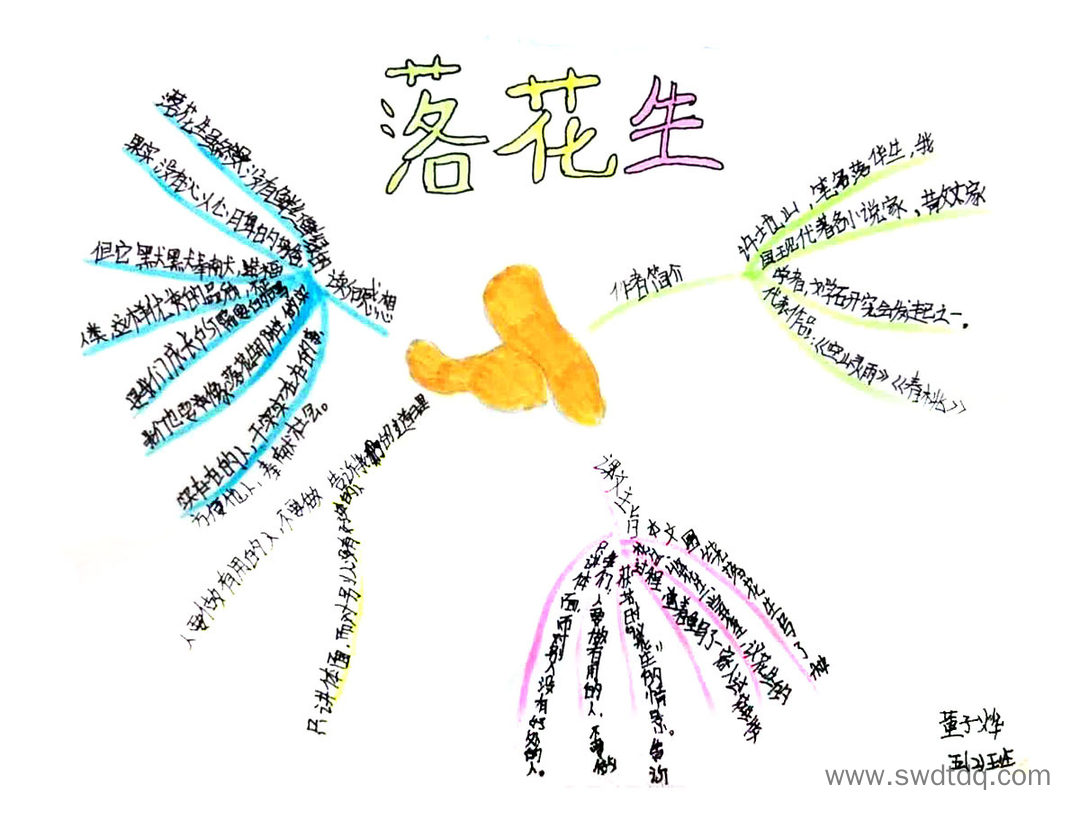 落花生
作者简介
许地山，笔名落华生，我
国现代著名小说家、散文家
学者，文学研究会发起之一。
代表作品：《空山灵雨》《春桃》
读后感想
落花生虽然没有鲜红嫩绿的
果实，没有沁人心
但它默默奉献，造福
人类，这样优秀的品质，
是我们成长的
我们也要像落花生那样，
实在在的人，干实实在在的事，
方便他人，奉献社会。
的道理
人要做有用的人，不要做
只讲体面，而对别人没有好处的
课文大旨
本文围绕落花生写了种
花生、尝花生、议花生的
过程，着重写了一家人过
获节的情景。告诉
我们，人要做有用的人，不要做
只讲体面，而对别人没有好处的人。
董子烨
五(2)班
www.swdtdq.com